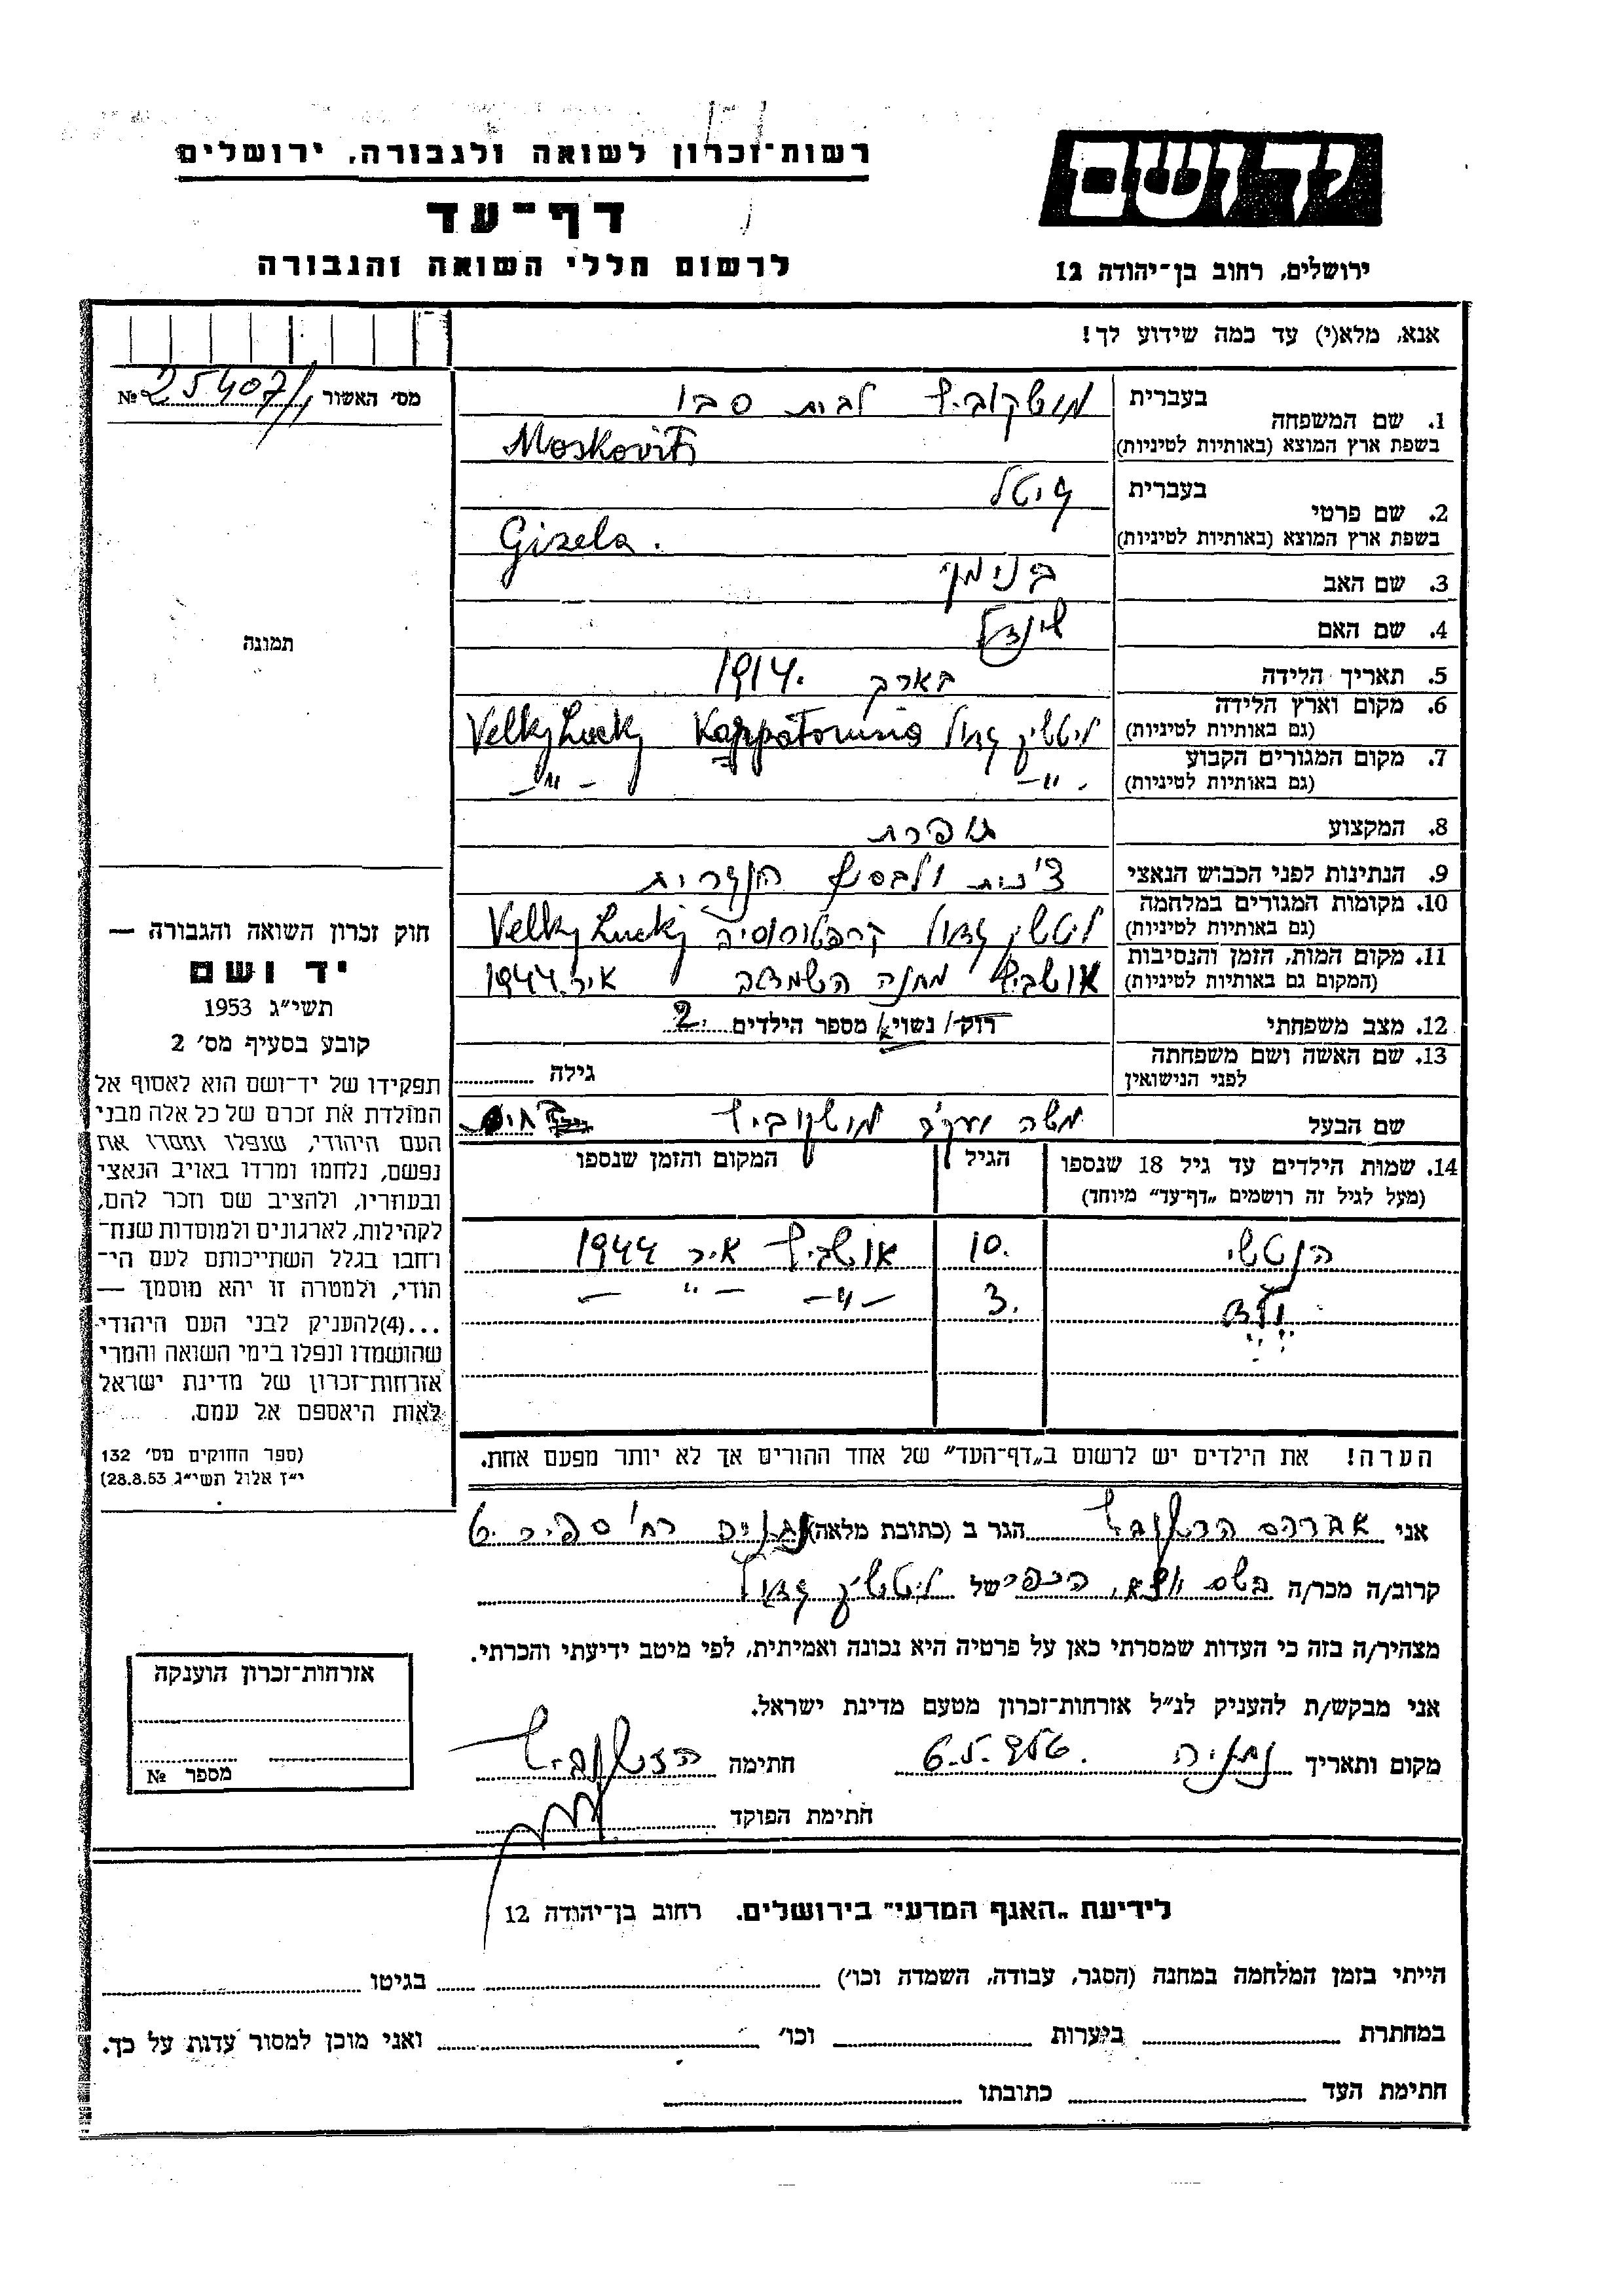 רשות־זכרון לשואה ולגבורה, ירושלים
יד ושם
דף־עד
לרשום חללי השואה והגבורה
ירושלים, רחוב בן־יהודה 12
אנא, מלא(י) עד כמה שידוע לך!
מס׳ האשור 25407/ №
1. שם המשפחה בעברית מושקוביץ לבית סבו
בשפת ארץ המוצא (באותיות לטיניות) Moskovits
2. שם פרטי בעברית גיטל
בשפת ארץ המוצא (באותיות לטיניות) Gizela.
3. שם האב בנימין
4. שם האם שינדל
תמונה
5. תאריך הלידה בארך 1914.
6. מקום וארץ הלידה
(גם באותיות לטיניות) Velky Lucky Karpatorusia
7. מקום המגורים הקבוע
(גם באותיות לטיניות) -"- -"-
8. המקצוע תופרת
9. הנתינות לפני הכבוש הנאצי צ'כית ולבסוף הונגרית
10. מקומות המגורים במלחמה
(גם באותיות לטיניות) Velky Lucky
11. מקום המות, הזמן והנסיבות
(המקום גם באותיות לטיניות) אושביץ מחנה השמדה אייר 1944
12. מצב משפחתי רוק/ נשוי/אה מספר הילדים 2.
13. שם האשה ושם משפחתה
לפני הנישואין גילה
שם הבעל משה יעקב מושקוביץ
14. שמות הילדים עד גיל 18 שנספו הגיל המקום והזמן שנספו
(מעל לגיל זה רושמים „דף־עד״ מיוחד)
הנטשי 10. אושביץ אייר 1944
ילד 3. -"- -"-
הערה! את הילדים יש לרשום ב„דף־העד״ של אחד ההורים אך לא יותר מפעם אחת.
חוק זכרון השואה והגבורה —
יד ושם
תשי״ג 1953
קובע בסעיף מס׳ 2
תפקידו של יד־ושם הוא לאסוף אל
המולדת את זכרם של כל אלה מבני
העם היהודי, שנפלו ומסרו את
נפשם, נלחמו ומרדו באויב הנאצי
ובעוזריו, ולהציב שם וזכר להם,
לקהילות, לארגונים ולמוסדות שנח־
רחבו בגלל השתייכותם לעם הי־
הודי, ולמטרה זו יהא מוסמך —
...(4) להעניק לבני העם היהודי
שהושמדו ונפלו בימי השואה והמרי
אזרחות־זכרון של מדינת ישראל
לאות היאספם אל עמם.
(ספר החוקים מס׳ 132
י״ז אלול תשי״ג 28.8.53)
אני אברהם הגר ב (כתובת מלאה) רח' ספיר
קרוב/ה מכר/ה של
מצהיר/ה בזה כי העדות שמסרתי כאן על פרטיה היא נכונה ואמיתית, לפי מיטב ידיעתי והכרתי.
אני מבקש/ת להעניק לנ״ל אזרחות־זכרון מטעם מדינת ישראל.
מקום ותאריך נתניה חתימה
חתימת הפוקד
אזרחות־זכרון הוענקה
מספר №
לידיעת „האגף המדעי״ בירושלים. רחוב בן־יהודה 12
הייתי בזמן המלחמה במחנה (הסגר, עבודה, השמדה וכו׳) בגיטו
במחתרת ביערות וכו׳ ואני מוכן למסור עדות על כך.
חתימת העד כתובתו